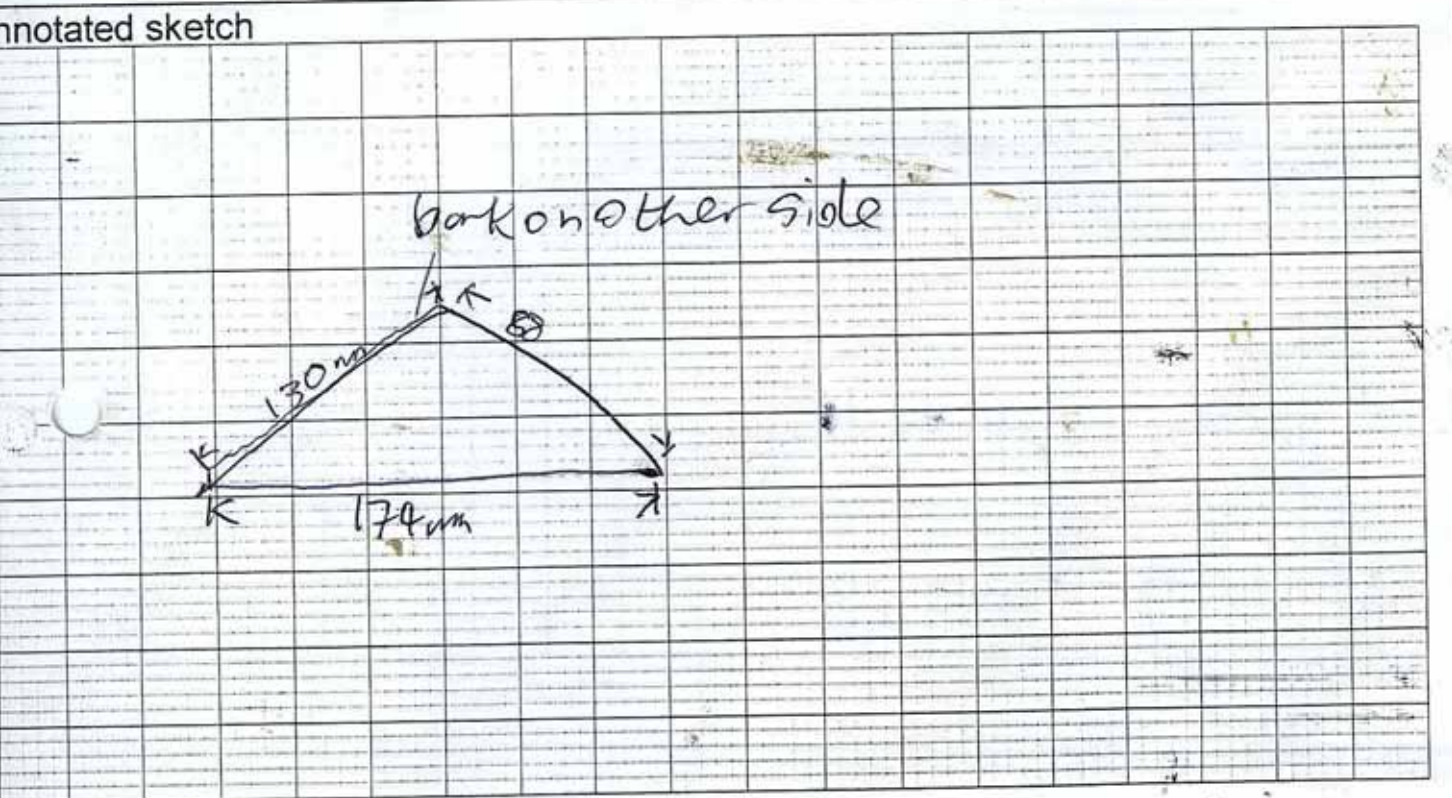 nnotated sketch
bark on other side
130 mm
174 mm